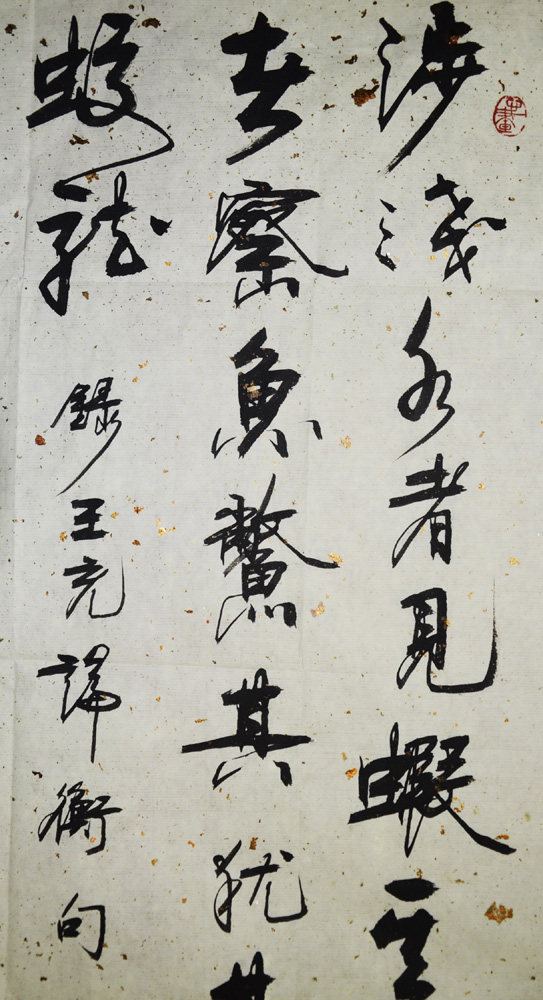 涉淺水者見蝦其
者察魚鱉其犹
蛟龍
錄王充論衡句